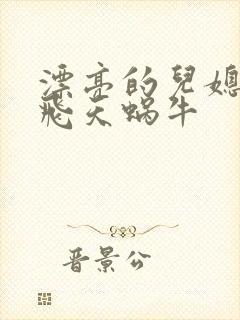 漂亮的兒媳
飛天蝸牛
晋景公